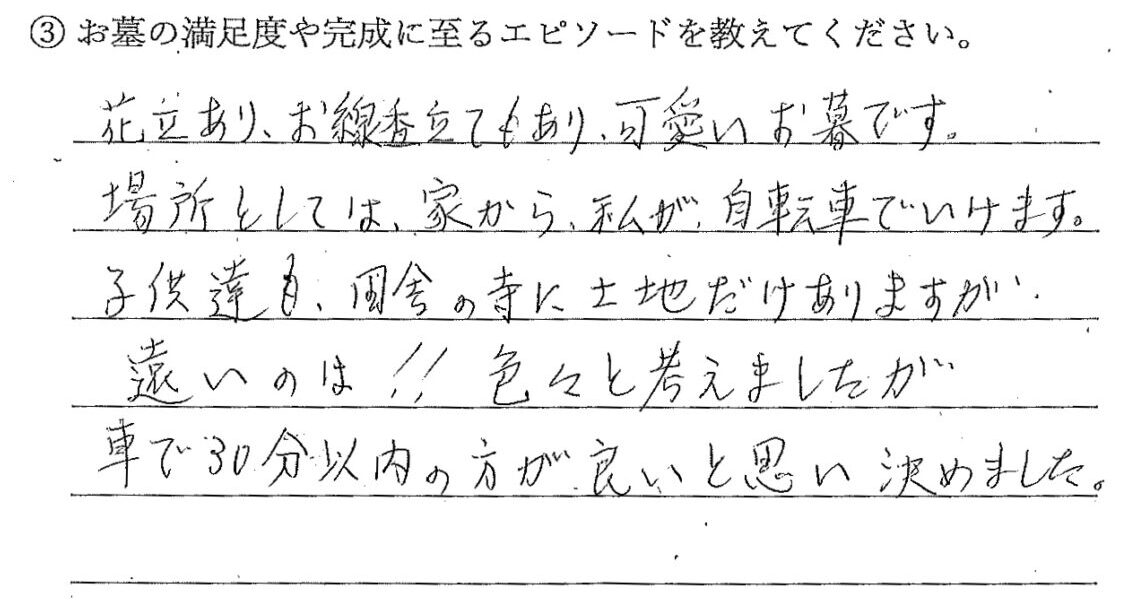 ③ お墓の満足度や完成に至るエピソードを教えてください。
花立あり、お線香立てもあり、可愛いお墓です。
場所としては、家から、私が、自転車でいけます。
子供達も、田舎の寺に土地だけありますが、
遠いのは!! 色々と考えましたが
車で30分以内の方が良いと思い決めました。